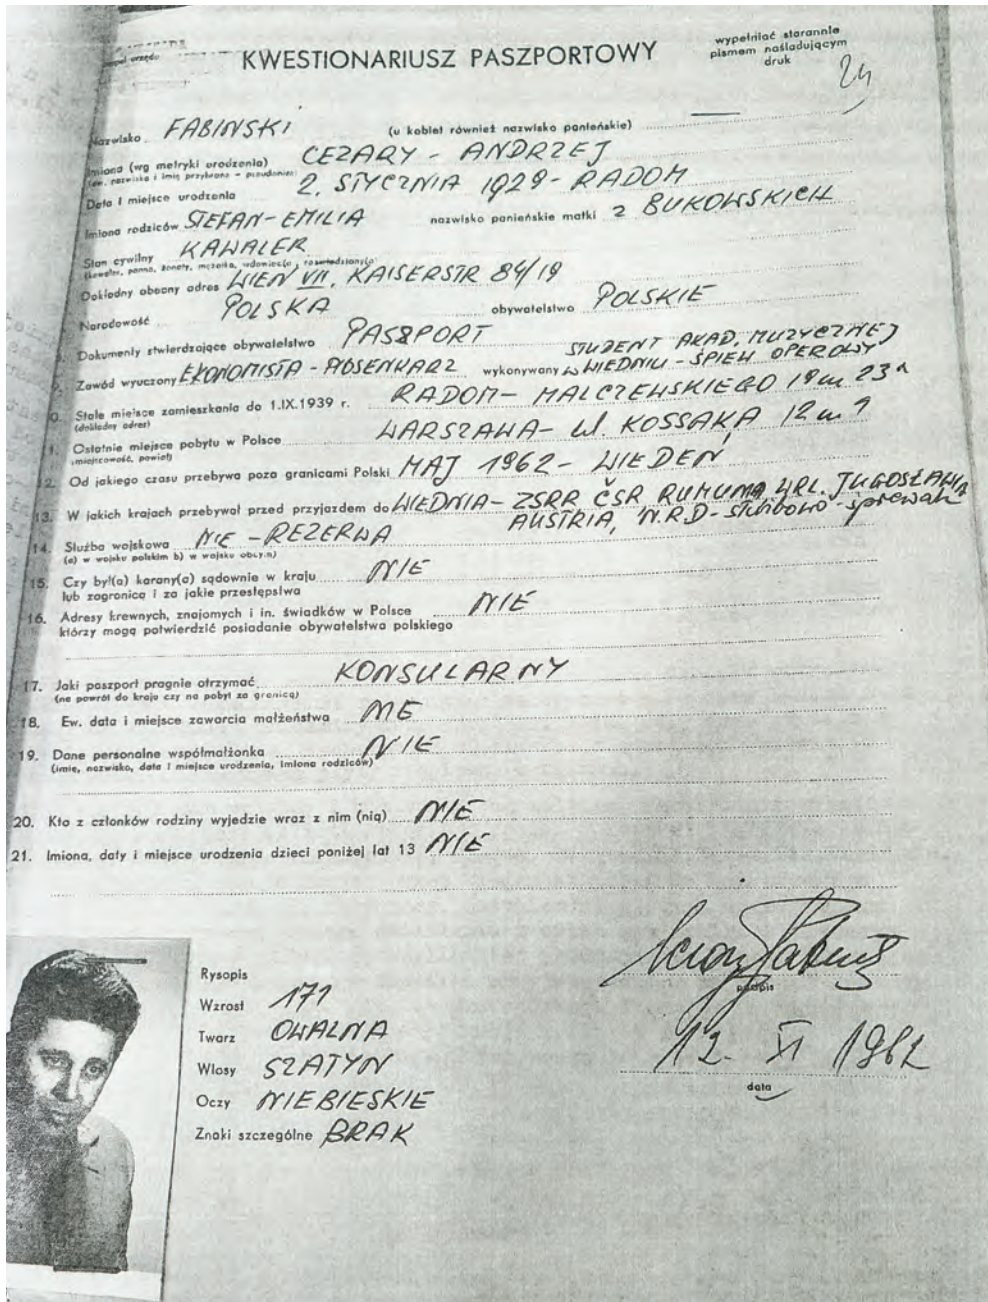 urzędu
KWESTIONARIUSZ PASZPORTOWY
wypełniać starannie
pismem naśladującym
druk
24
Nazwisko FABINSKI (u kobiet również nazwisko panieńskie)
Imiona (wg metryki urodzenia) CEZARY - ANDRZEJ
(ew. nazwiska i imię przybrane - pseudonim)
Data i miejsce urodzenia 2. STYCZNIA 1929 - RADOM
Imiona rodziców STEFAN - EMILIA nazwisko panieńskie matki z BUKOWSKICH
Stan cywilny KAWALER
(kawaler, panna, żonaty, mężatka, wdowiec(a), rozwiedziony(a)
Dokładny obecny adres WIEN VII. KAISERSTR 84/19
Narodowość POLSKA obywatelstwo POLSKIE
Dokumenty stwierdzające obywatelstwo PASZPORT
Zawód wyuczony EKONOMISTA - ABSENKARZ wykonywany STUDENT AKAD. MUZYCZNEJ
W WIEDNIU - ŚPIEW OPEROWY
0. Stałe miejsce zamieszkania do 1.IX.1939 r. RADOM - MALCZEWSKIEGO 19 m 23a
(dokładny adres)
1. Ostatnie miejsce pobytu w Polsce WARSZAWA - W. KOSSAKA 12 m 9
(miejscowość, powiat)
2. Od jakiego czasu przebywa poza granicami Polski MAJ 1962 - WIEDEŃ
13. W jakich krajach przebywał przed przyjazdem do WIEDNIA - ZSRR ČSR RUMUNIA WRL. JUGOSŁAWIA
AUSTRIA, N.R.D - służbowo - śpiewak
14. Służba wojskowa NIE - REZERWA
(a) w wojsku polskim b) w wojsku obcym)
15. Czy był(a) karany(a) sądownie w kraju NIE
lub zagranicą i za jakie przestępstwa
16. Adresy krewnych, znajomych i in. świadków w Polsce NIE
którzy mogą potwierdzić posiadanie obywatelstwa polskiego
17. Jaki paszport pragnie otrzymać KONSULARNY
(na powrót do kraju czy na pobyt za granicą)
18. Ew. data i miejsce zawarcia małżeństwa NIE
19. Dane personalne współmałżonka NIE
(imię, nazwisko, data i miejsce urodzenia, imiona rodziców)
20. Kto z członków rodziny wyjedzie wraz z nim (nią) NIE
21. Imiona, daty i miejsce urodzenia dzieci poniżej lat 13 NIE
Rysopis
Wzrost 171
Twarz OWALNA
Włosy SZATYN
Oczy NIEBIESKIE
Znaki szczególne BRAK
podpis
12. XI 1962
data